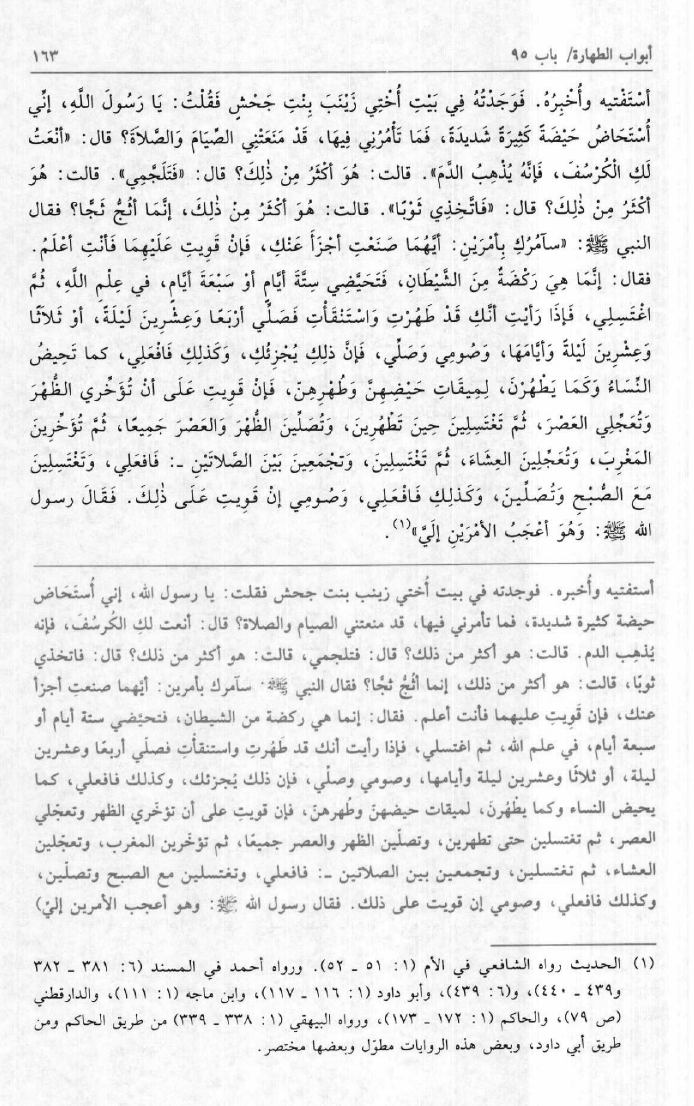 أبواب الطهارة/ باب ٩٥
١٦٣
أَسْتَفْتيه وأُخْبِرُهُ. فَوَجَدْتُهُ فِي بَيْتِ أُخْتِي زَيْنَبَ بِنْتِ جَحْشٍ فَقُلْتُ: يَا رَسُولَ اللَّهِ، إنِّي
أُسْتَحَاضُ حَيْضَةً كَثِيرَةً شَديدَةً، فَمَا تَأْمُرُنِي فِيهَا، قَدْ مَنَعَتْنِي الصِّيَامَ وَالصَّلاَةَ؟ قال: «أنْعَتُ
لَكِ الْكُرْسُفَ، فَإنَّهُ يُذْهِبُ الدَّمَ». قالت: هُوَ أكْثَرُ مِنْ ذٰلِكَ؟ قال: «فَتَلَجَّمِي». قالت: هُوَ
أكْثَرُ مِنْ ذٰلِكَ؟ قال: «فَاتَّخِذِي ثَوْبًا». قالت: هُوَ أكْثَرُ مِنْ ذٰلِكَ، إنَّمَا أثُجُّ ثَجًّا؟ فقال
النبي ﷺ: «سآمُرُكِ بِأمْرَيْنِ: أيَّهُمَا صَنَعْتِ أجْزَأَ عَنْكِ، فَإنْ قَوِيتِ عَلَيْهِمَا فَأنْتِ أعْلَمُ.
فقال: إنَّمَا هِيَ رَكْضَةٌ مِنَ الشَّيْطَانِ، فَتَحَيَّضِي سِتَّةَ أيَّامٍ أوْ سَبْعَةَ أيَّامٍ، في عِلْمِ اللَّهِ، ثُمَّ
اغْتَسِلِي، فَإذَا رَأيْتِ أنَّكِ قَدْ طَهُرْتِ وَاسْتَنْقَأْتِ فَصَلِّي أرْبَعًا وَعِشْرِينَ لَيْلَةً، أوْ ثَلاَثًا
وَعِشْرِينَ لَيْلَةً وَأيَّامَهَا، وَصُومِي وَصَلِّي، فَإنَّ ذلِكِ يُجْزِئُكِ، وَكَذلِكِ فَافْعَلِي، كما تَحِيضُ
النِّسَاءُ وَكَمَا يَطْهُرْنَ، لِمِيقَاتِ حَيْضِهِنَّ وَطُهْرِهِنَّ، فَإنْ قَوِيتِ عَلَى أنْ تُؤَخِّرِي الظُّهْرَ
وَتُعَجِّلِي العَصْرَ، ثُمَّ تَغْتَسِلِينَ حِينَ تَطْهُرِينَ، وَتُصَلِّينَ الظُّهْرَ وَالعَصْرَ جَمِيعًا، ثُمَّ تُؤَخِّرِينَ
المَغْرِبَ، وَتُعَجِّلِينَ العِشَاءَ، ثُمَّ تَغْتَسِلِينَ، وَتَجْمَعِينَ بَيْنَ الصَّلاتَيْنِ ـ: فَافعَلِي، وَتَغْتَسِلِينَ
مَعَ الصُّبْحِ وَتُصَلِّينَ، وَكَذلِكِ فَافْعَلِي، وَصُومِي إنْ قَوِيتِ عَلَى ذٰلِكَ. فَقَالَ رسول
الله ﷺ: وَهُوَ أعْجَبُ الأمْرَيْنِ إلَيَّ»(١).
أستفتيه وأُخبره. فوجدته في بيت أُختي زينب بنت جحش فقلت: يا رسول الله، إني أُستَحَاض
حيضة كثيرة شديدة، فما تأمرني فيها، قد منعتني الصيام والصلاة؟ قال: أنعت لكِ الكُرسُفَ، فإنه
يُذهِب الدم. قالت: هو أكثر من ذلك؟ قال: فتلجمي، قالت: هو أكثر من ذلك؟ قال: فاتخذي
ثوبًا، قالت: هو أكثر من ذلك، إنما أثُجُّ ثجًّا؟ فقال النبي ﷺ: سآمرك بأمرين: أيَّهما صنعتِ أجزأ
عنك، فإن قَوِيتِ عليهما فأنت أعلم. فقال: إنما هي ركضة من الشيطان، فتحيّضي ستة أيام أو
سبعة أيام، في علم الله، ثم اغتسلي، فإذا رأيت أنك قد طَهُرتِ واستنقأتِ فصلّي أربعًا وعشرين
ليلة، أو ثلاثًا وعشرين ليلة وأيامها، وصومي وصلّي، فإن ذلك يُجزئك، وكذلك فافعلي، كما
يحيض النساء وكما يطْهُرْنَ، لميقات حيضهنّ وطُهرهنّ، فإن قويتِ على أن تؤخّري الظهر وتعجّلي
العصر، ثم تغتسلين حتى تطهرين، وتصلّين الظهر والعصر جميعًا، ثم تؤخّرين المغرب، وتعجّلين
العشاء، ثم تغتسلين، وتجمعين بين الصلاتين ـ: فافعلي، وتغتسلين مع الصبح وتصلّين،
وكذلك فافعلي، وصومي إن قويت على ذلك. فقال رسول الله ﷺ: وهو أعجب الأمرين إليّ)
(١) الحديث رواه الشافعي في الأم (١: ٥١ ـ ٥٢). ورواه أحمد في المسند (٦: ٣٨١ ـ ٣٨٢
و٤٣٩ ـ ٤٤٠)، و(٦: ٤٣٩)، وأبو داود (١: ١١٦ ـ ١١٧)، وابن ماجه (١: ١١١)، والدارقطني
(ص ٧٩)، والحاكم (١: ١٧٢ ـ ١٧٣)، ورواه البيهقي (١: ٣٣٨ ـ ٣٣٩) من طريق الحاكم ومن
طريق أبي داود، وبعض هذه الروايات مطوّل وبعضها مختصر.